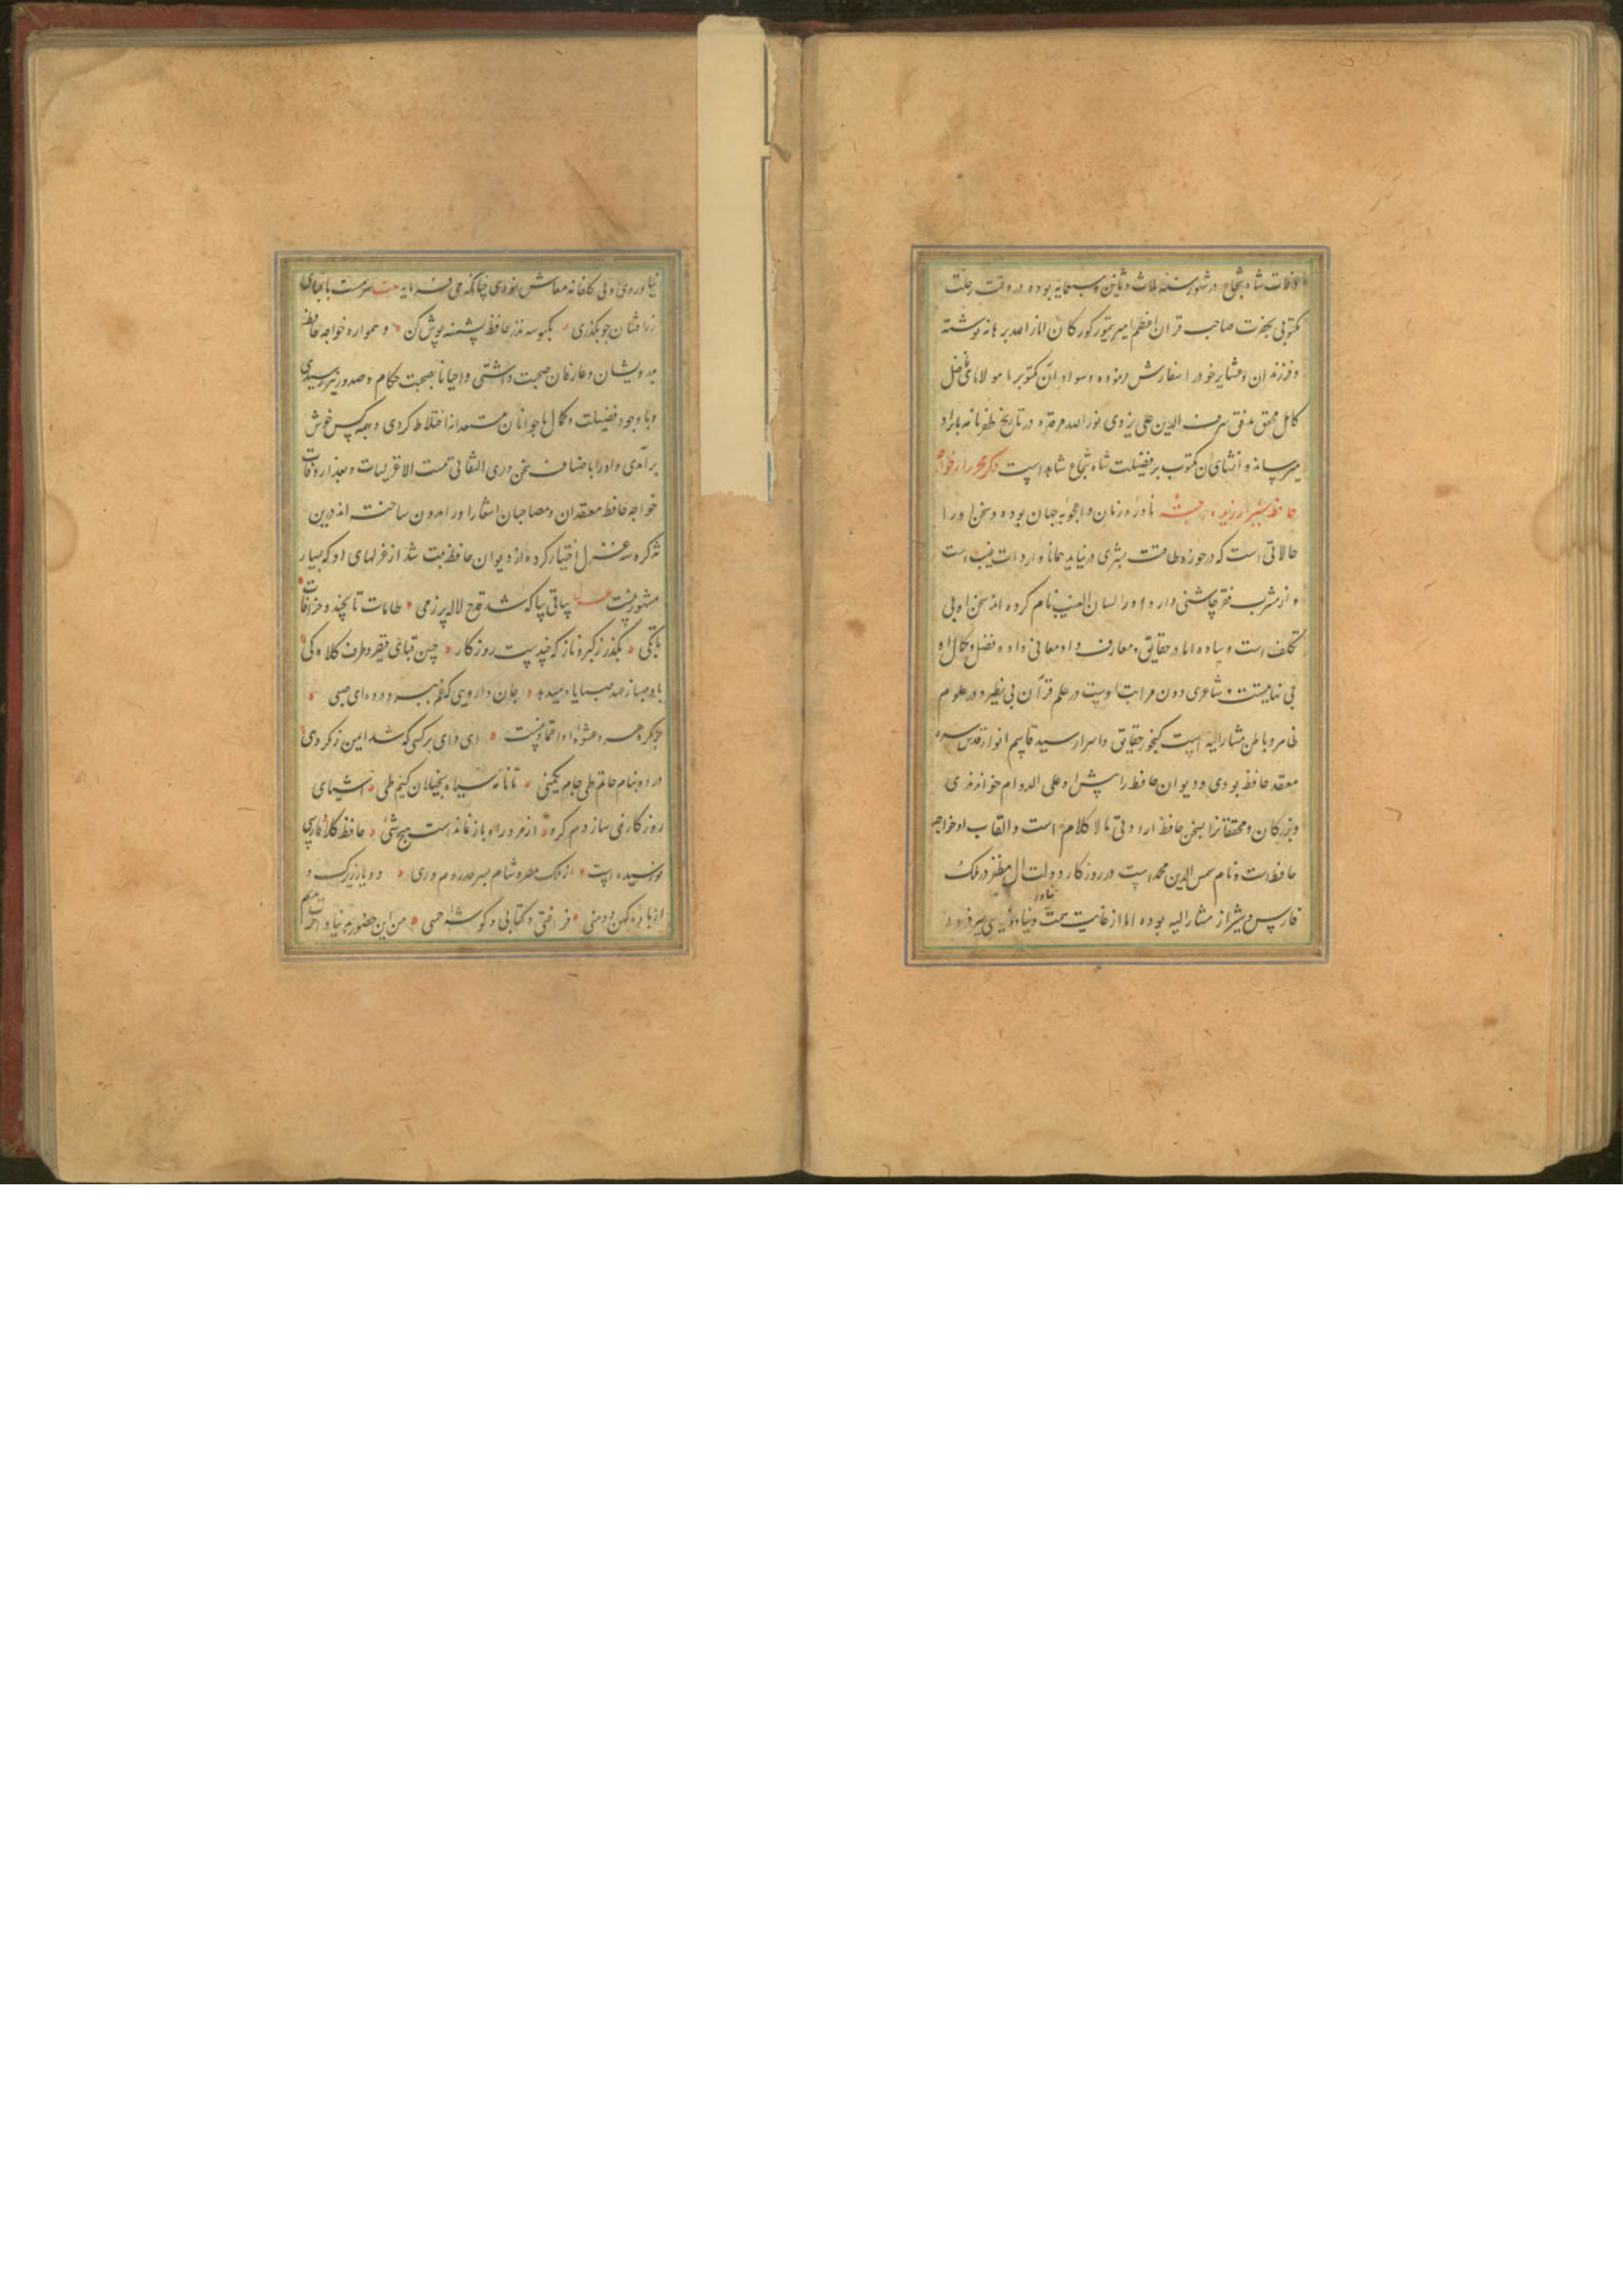 وفات شاه شجاع در شهور سنه ثلاث و ثمانین و سبعمایه بوده در وقت رحلت
مکتوبی بحضرت صاحب قران اعظم امیر تیمور کورکان انار الله برهانه نوشته
و فرزندان و عشایر خود را سفارش نموده و سواد آن مکتوب را مولانای فاضل
کامل محقق مدقق شرف الدین علی یزدی نور الله مرقده در تاریخ ظفرنامه بایراد
میرساند و انشای آن مکتوب بر فضیلت شاه شجاع شاهد است ذکر خواجه
حافظ شیراز نادره زمان و اعجوبه جهان بوده و سخن او را
حالاتی است که در حوزه طاقت بشری در نیاید همانا واردات غیب است
و از مشرب فقر چاشنی دارد و او را لسان الغیب نام کرده اند سخن او بی
تکلف است و ساده اما در حقایق و معارف داد معانی داده فضل و کمال او
بی نهایتست و شاعری دون مراتب اوست در علم قرآن بی نظیر و در علوم
ظاهر و باطن مشار الیه است کنجور حقایق و اسرار سید قاسم انوار قدس سره
معتقد حافظ بودی و دیوان حافظ را پیش او علی الدوام خواندندی
و بزرکان و محققانرا بسخن حافظ ارادتی مالا کلام است و القاب او خواجه
حافظ است و نام شمس الدین محمد است در روزکار دولت آل مظفر در ملک
فارس و شیراز مشار الیه بوده اما از غایت همت بدنیاء دنی سر فرود
نیاوردی و بی تکلفانه معاش نمودی چنانکه می فرماید بیت سرمست با قبای
زرافشان چو بکذری بکبوسه نذر حافظ پشمینه پوش کن و همواره خواجه حافظ
بدرویشان و عارفان صحبت داشتی و احیانا بصحبت حکام و صدور نیز رسیدی
و با وجود فضیلت و کمال با جوانان مستعدانه اختلاط کردی و بهمه کس خوش
برآمدی و او را باصناف سخن وری التفاتی نیست الا غزلیات و بعد از وفات
خواجه حافظ معتقدان و مصاحبان اشعار او را مدون ساختند درین
تذکره سه غزل اختیار کرده از دیوان حافظ ثبت شد از غزلهای او که بسیار
مشهور نیست غزل ساقی بیا که شد قدح لاله پر ز می طامات تا بچند و خرافات
تا بکی بکذر ز کبر و ناز که دیدست روزکار چین قبای قیصر و طرف کلاه کی
باد صبا ز عهد صبا یاد میدهد جان دارویی که غم ببرد درده ای صبی
بر مهر چرخ و عشوه او اعتماد نیست ای وای بر کسی که شد ایمن ز مکر وی
درده بنام حاتم طی جام یکمنی تا نامه سیاه بخیلان کنیم طی
حافظ کلام فارسی
تو رسیده است از ملک مصر و شام بسر حد روم و ری دو یار زیرک و
از باده کهن دو منی فراغتی و کتابی و کوشه چمنی من این حضور بدنیا و آخرت ندهم